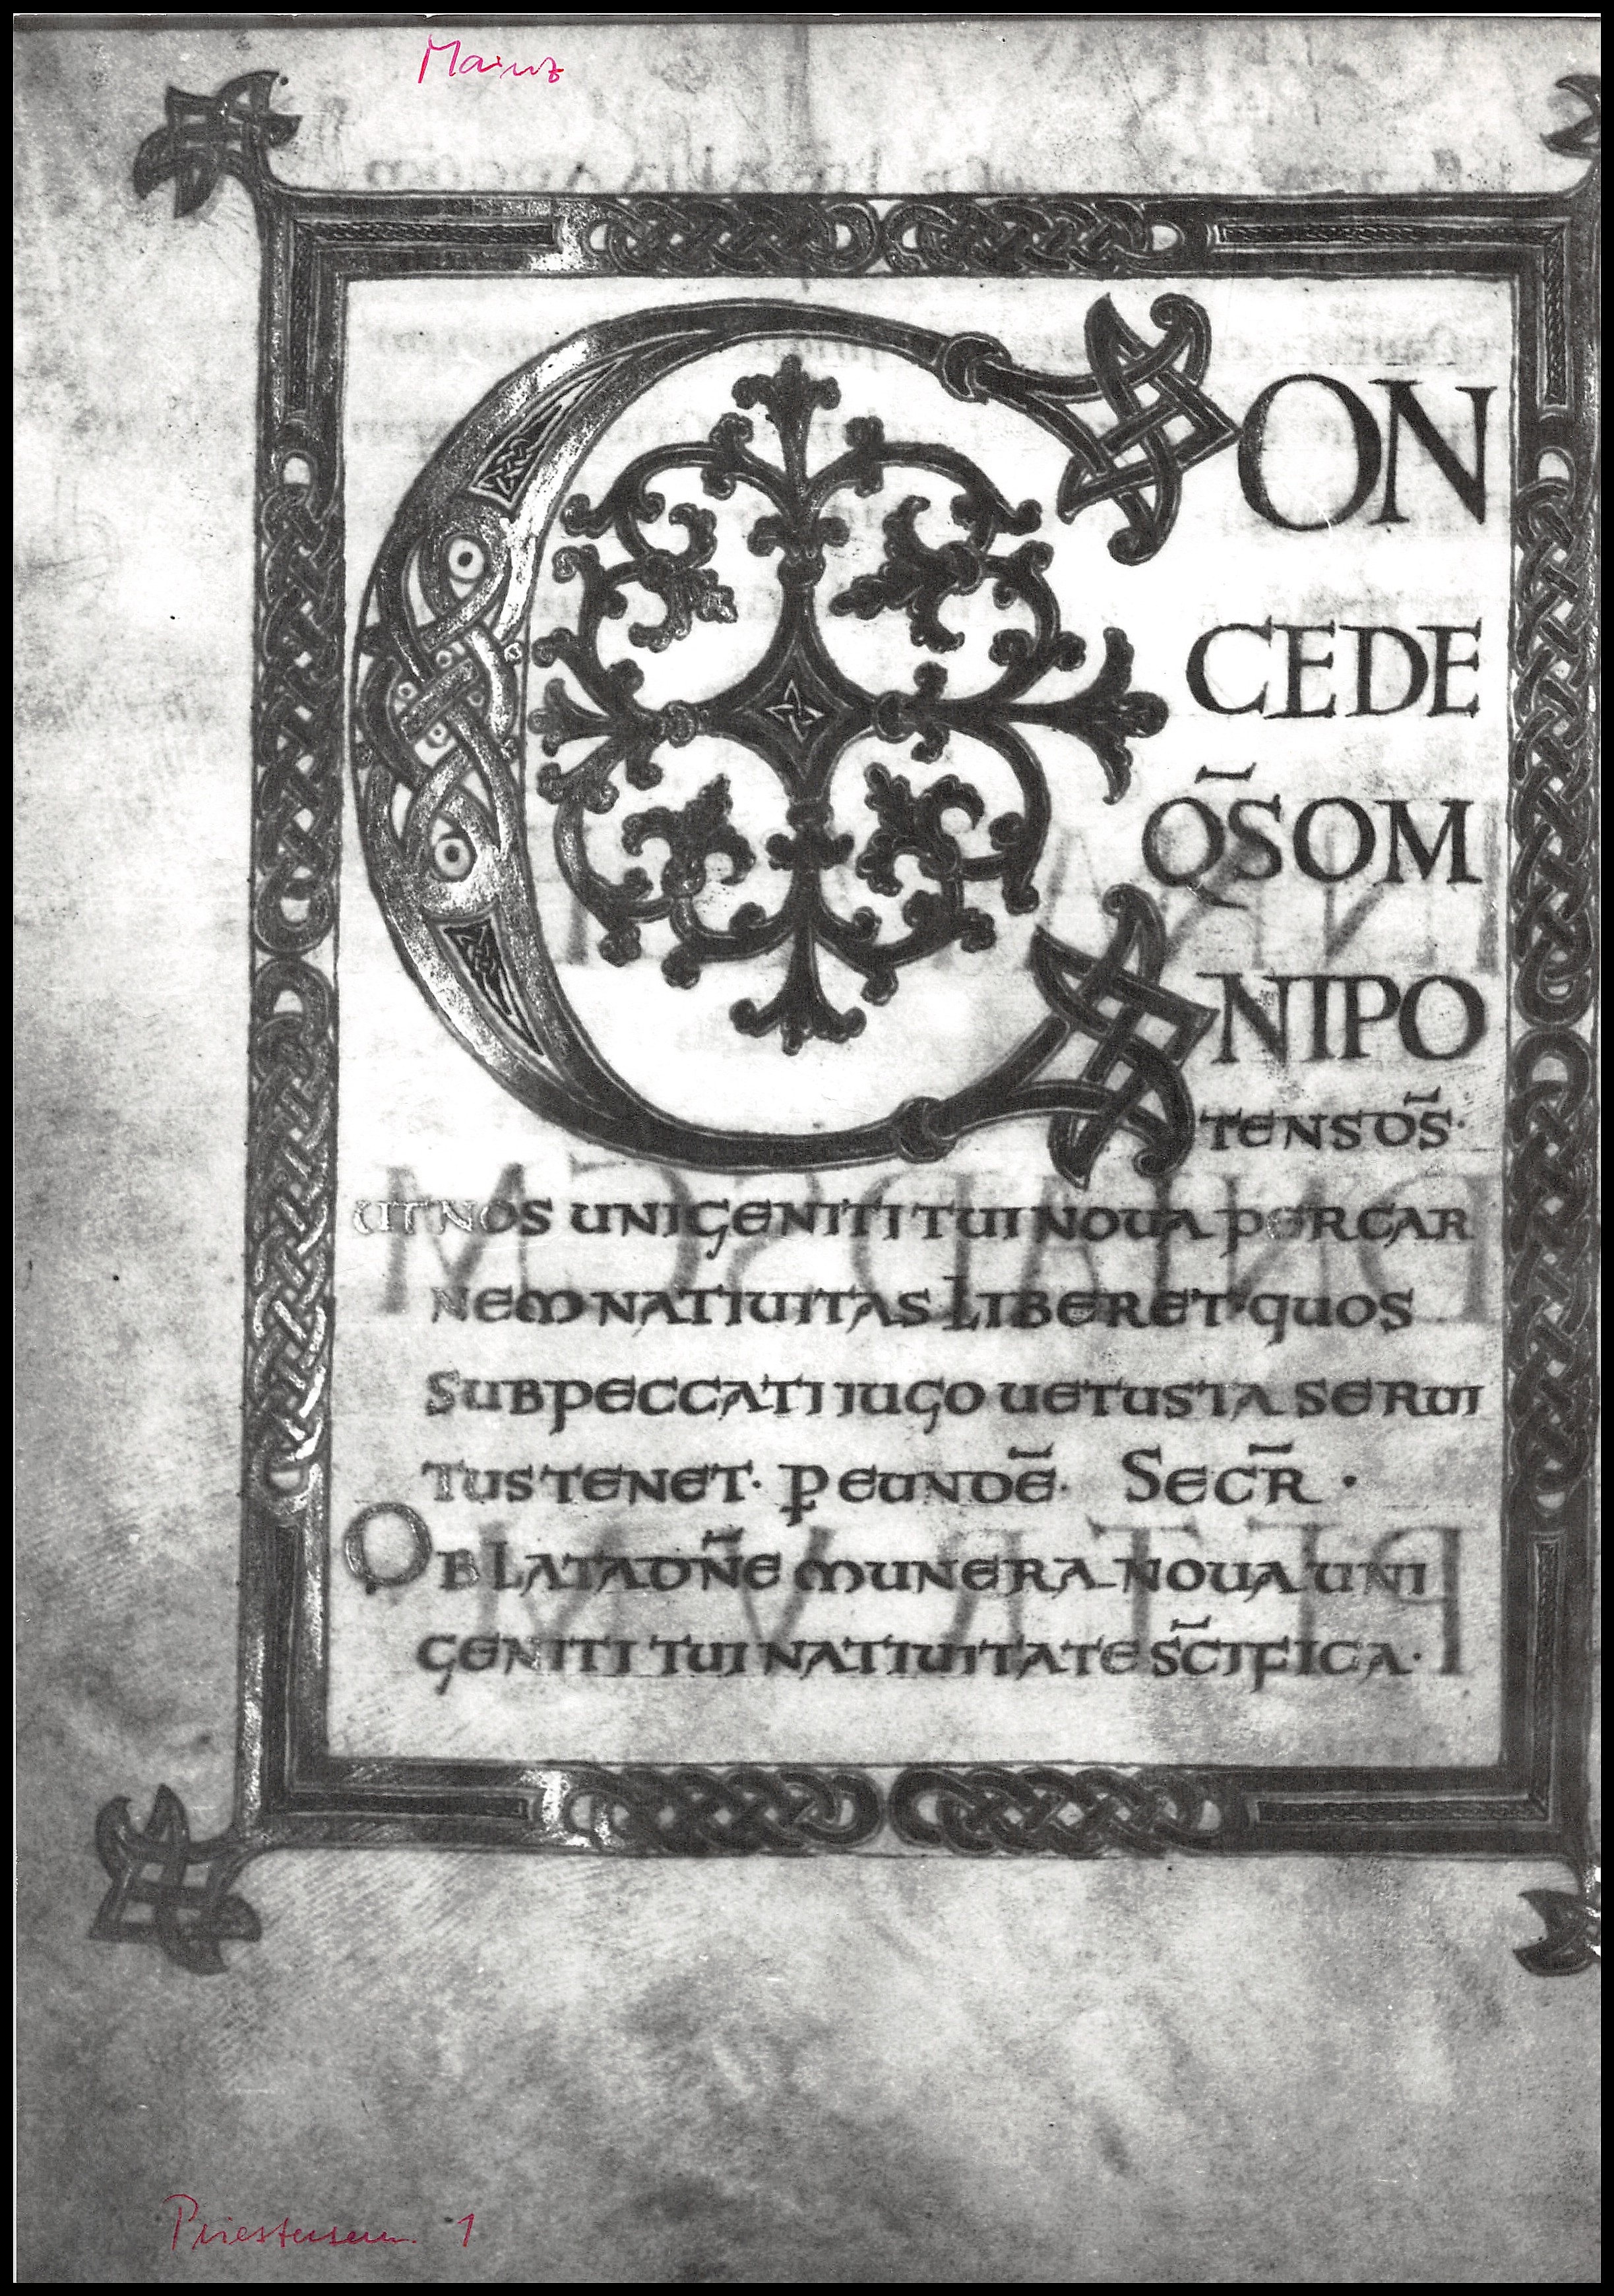 Mainz
CON
CEDE
QS̄OM
NIPO
TENS D̄S·
UT NOS UNIGENITI TUI NOUA PER CAR
NEM NATIUITAS LIBERET· QUOS
SUB PECCATI IUGO UETUSTA SERUI
TUS TENET· P EUNDĒ· SECR̄·
OBLATA DN̄E MUNERA NOUA UNI
GENITI TUI NATIUITATE SC̄IFICA·
Priestersem. 1